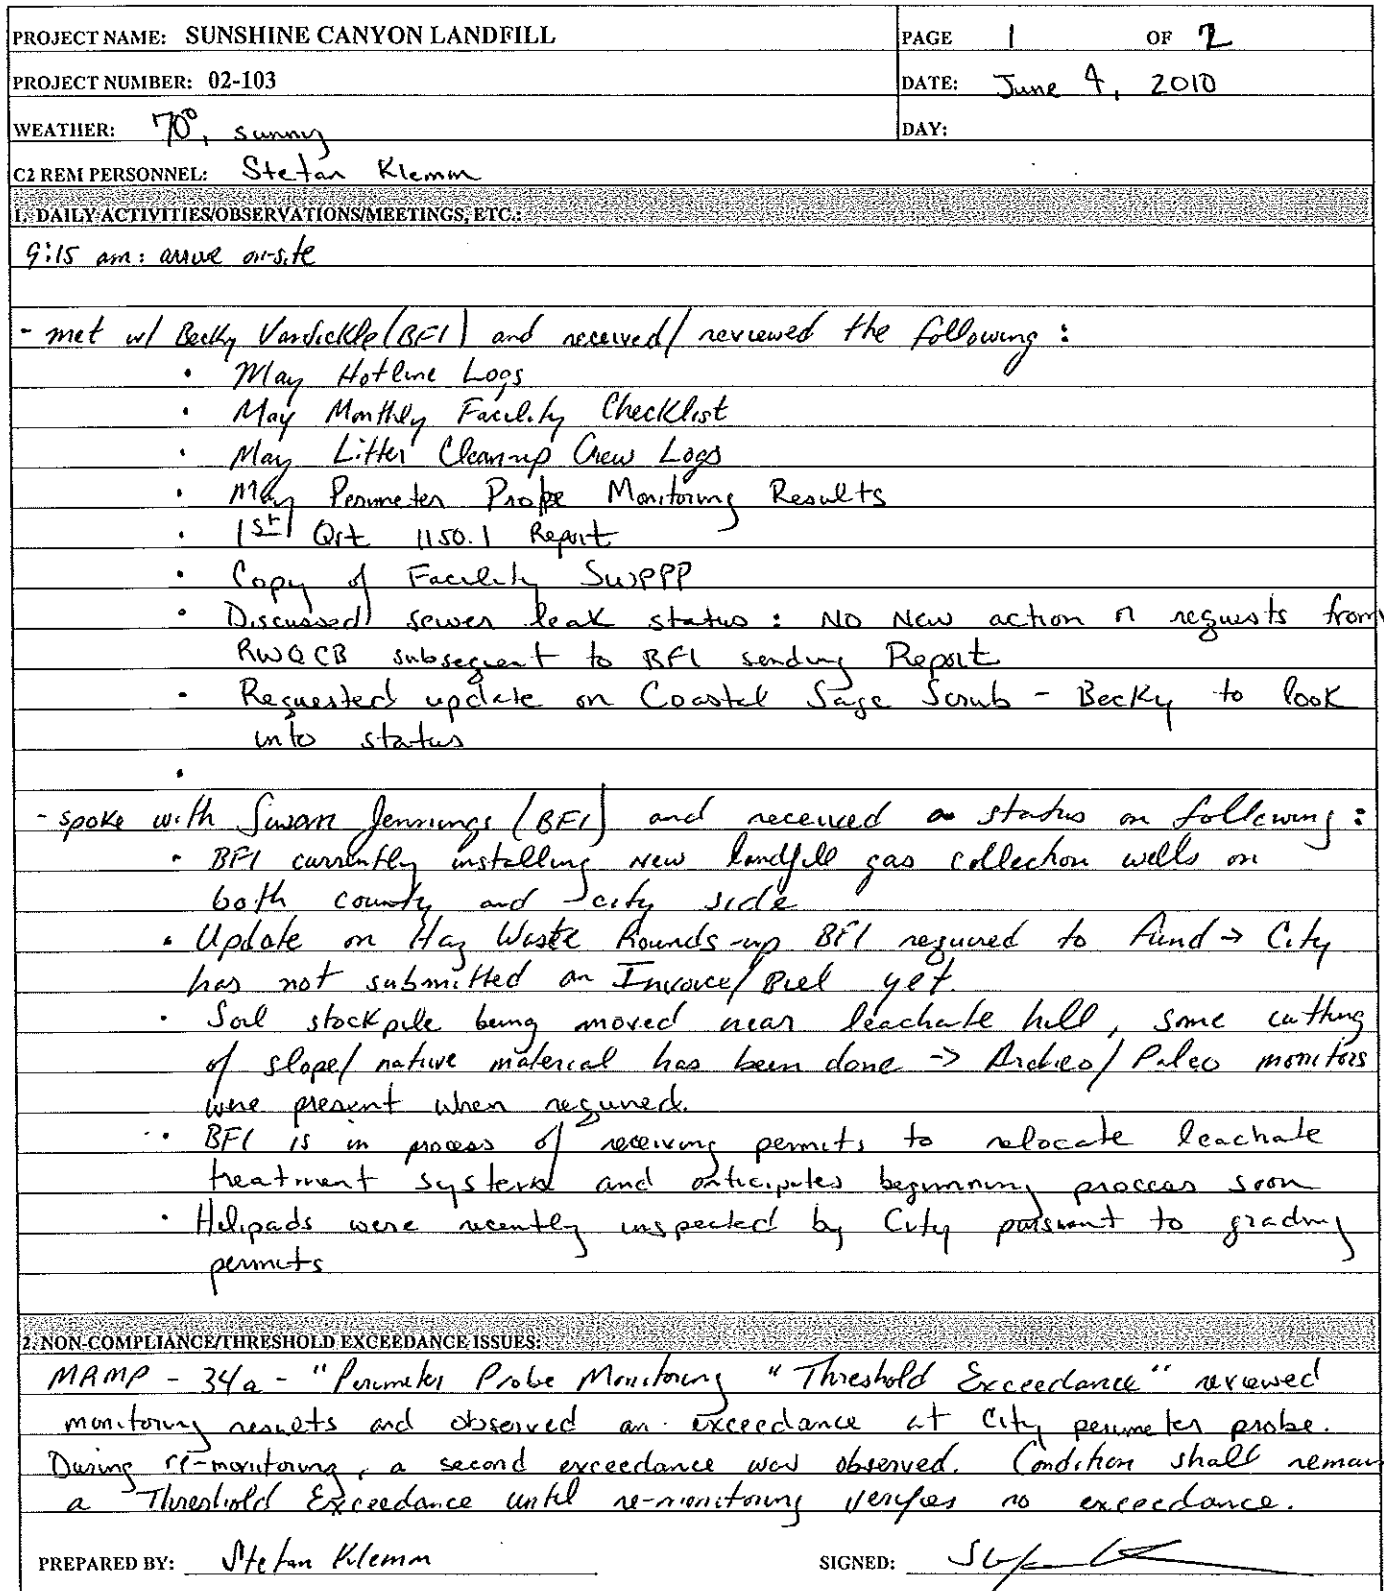 PROJECT NAME: SUNSHINE CANYON LANDFILL
PAGE 1 OF 2
PROJECT NUMBER: 02-103
DATE: June 4, 2010
WEATHER: 70°, sunny
DAY:
C2 REM PERSONNEL: Stefan Klemm
1. DAILY ACTIVITIES/OBSERVATIONS/MEETINGS, ETC.:
9:15 am: arrive on-site
- met w/ Becky Vandickle (BFI) and received/reviewed the following:
• May Hotline Logs
• May Monthly Facility Checklist
• May Litter Clean-up Crew Logs
• May Perimeter Probe Monitoring Results
• 1st Qrt 1150.1 Report
• Copy of Facility SWPPP
• Discussed sewer leak status: No New action or requests from
RWQCB subsequent to BFI sending Report
• Requested update on Coastal Sage Scrub - Becky to look
into status
•
- spoke with Susan Jennings (BFI) and received status on following:
• BFI currently installing new landfill gas collection wells on
both county and city side
• Update on Haz Waste Rounds-up BFI required to Fund → City
has not submitted an Invoice/Bill yet.
• Soil stockpile being moved near leachate hill, some cutting
of slope/native material has been done → Archeo/Paleo monitors
were present when required.
• BFI is in process of receiving permits to relocate leachate
treatment system and anticipates beginning process soon
• Helipads were recently inspected by City pursuant to grading
permits
2. NON-COMPLIANCE/THRESHOLD EXCEEDANCE ISSUES:
MAMP - 34a - "Perimeter Probe Monitoring "Threshold Exceedance" reviewed
monitoring results and observed an exceedance at City perimeter probe.
During re-monitoring, a second exceedance was observed. Condition shall remain
a Threshold Exceedance until re-monitoring verifies no exceedance.
PREPARED BY: Stefan Klemm
SIGNED: